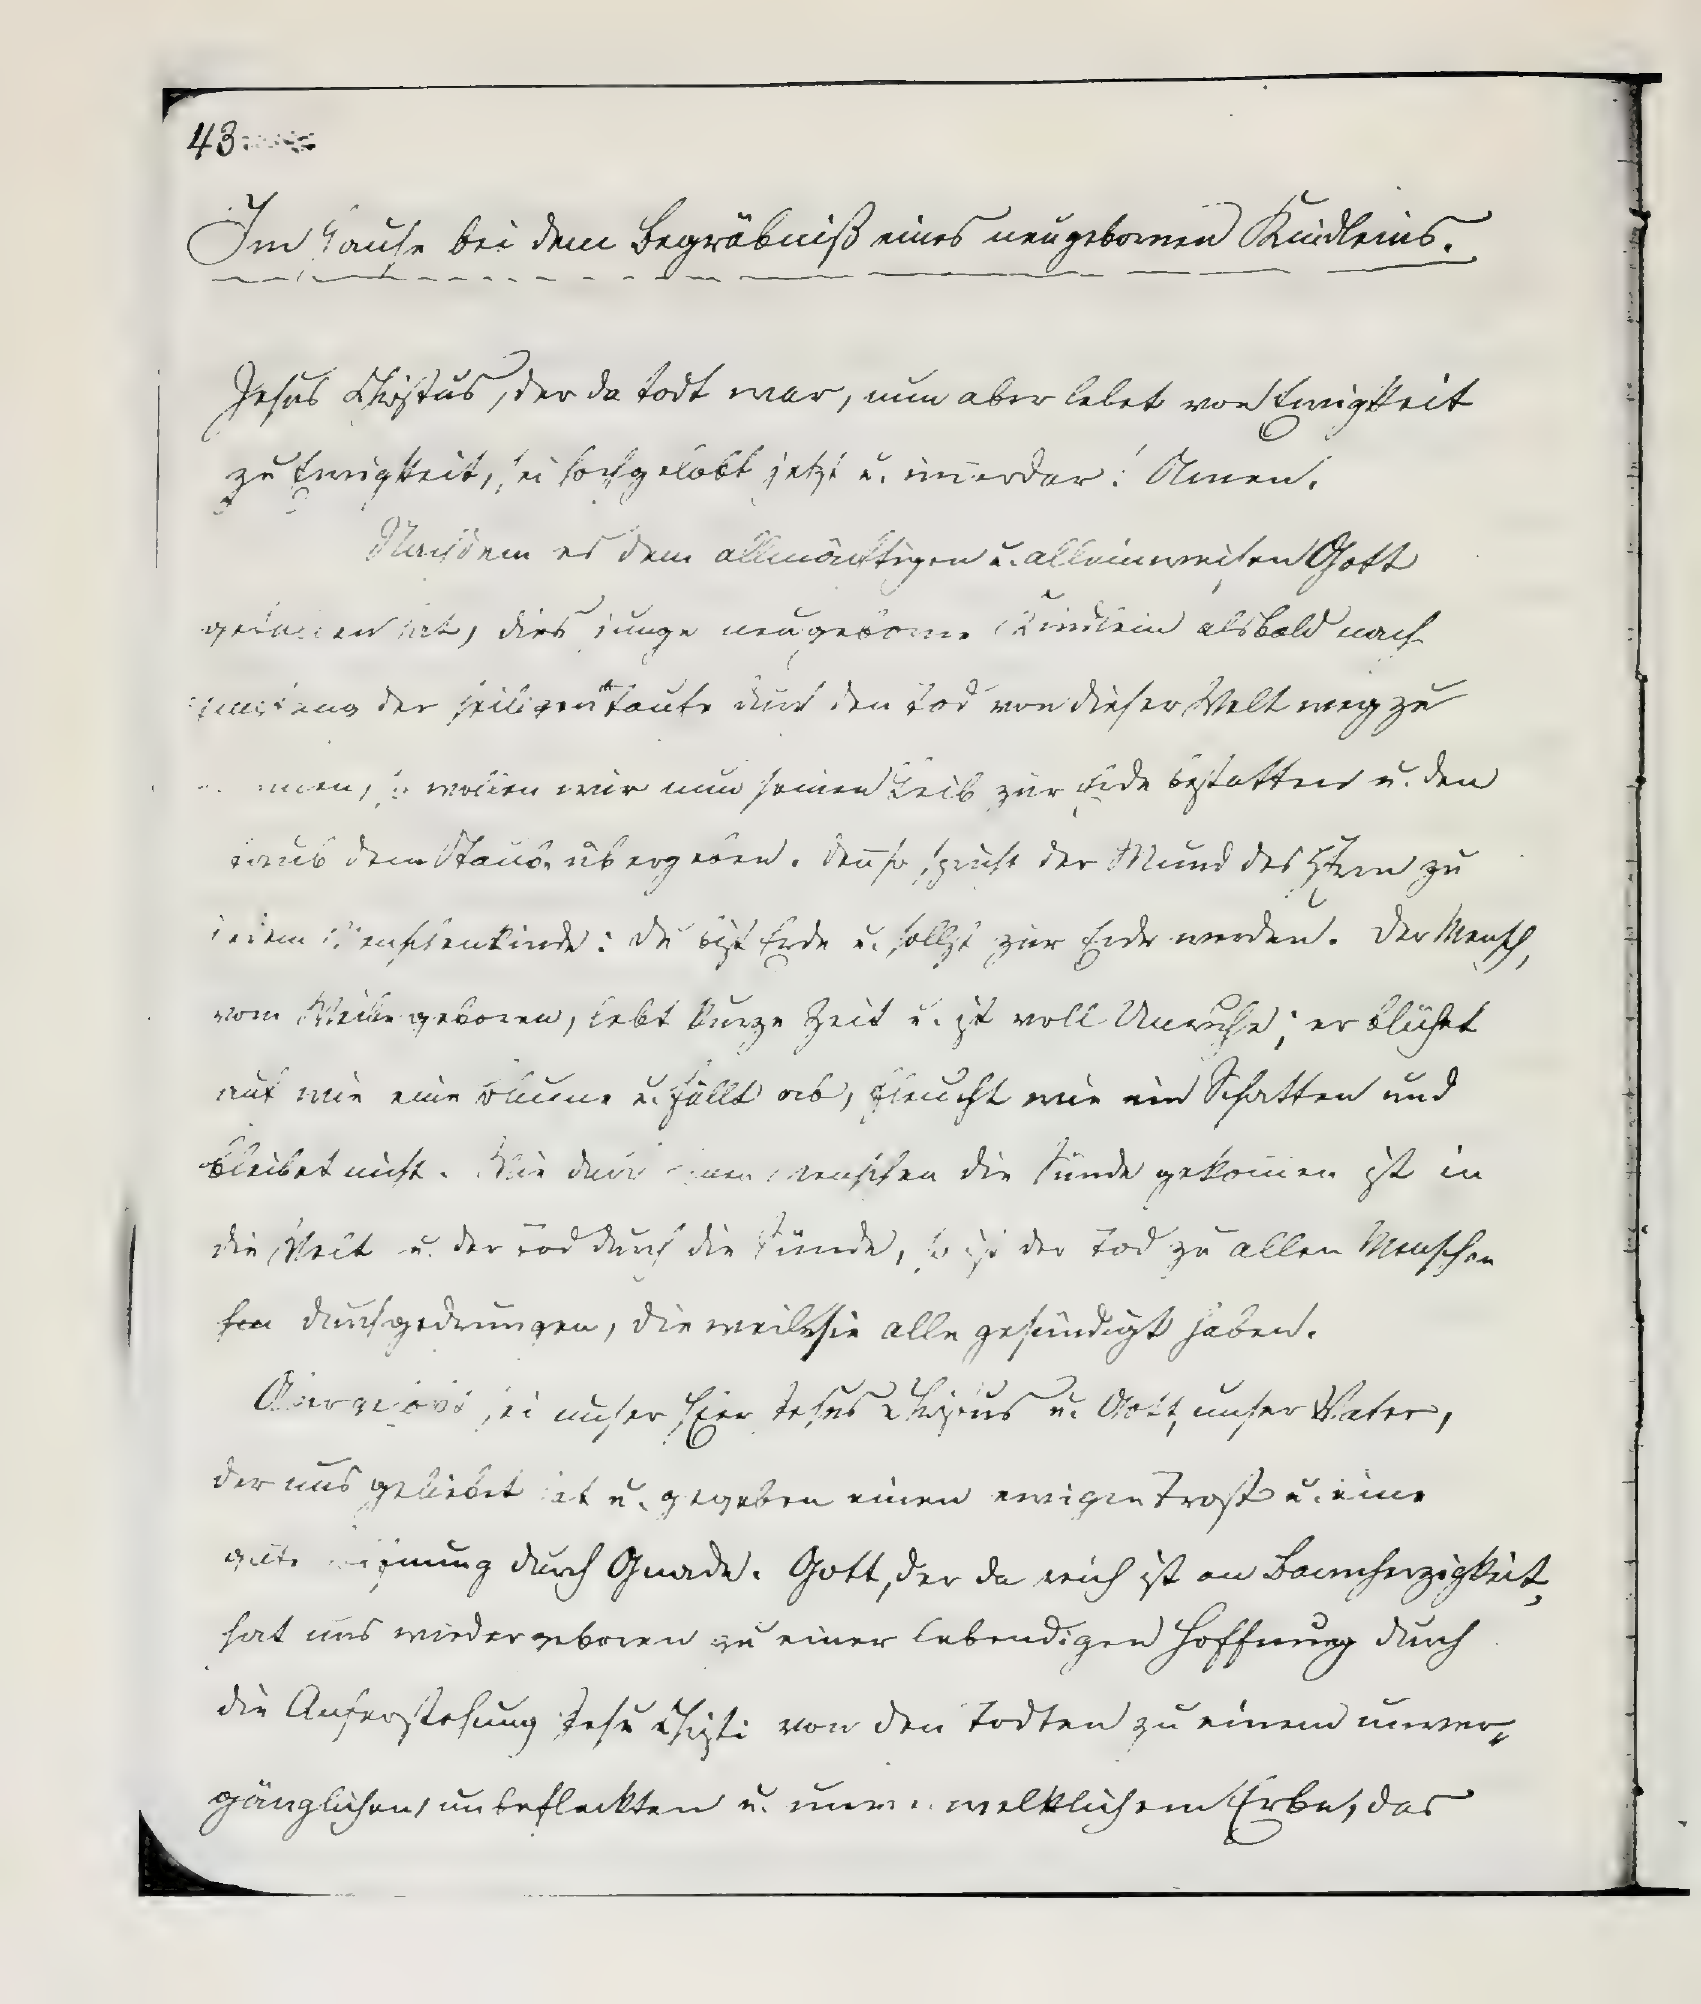 43
Im Hause bei dem Begräbniß eines neugebornen Kindleins.
Jesus Christus, der da todt war, nun aber lebet von Ewigkeit
zu Ewigkeit, sei hochgelobt jetzt u. im̅erdar! Amen.
Nachdem es dem allmächtigen u. alleinweisen Gott
gefallen hat, dies junge neugeborne Kindlein alsbald nach
Empfang der heiligen Taufe durch den Tod von dieser Welt wegzu
nehmen, so wollen wir nun seinen Leib zur Erde bestatten u. den
Staub dem Staube übergeben. Den̅ so spricht der Mund des Herrn zu
jedem Menschenkinde: du bist Erde u. sollst zur Erde werden. Der Mensch,
vom Weibe geboren, lebt kurze Zeit u. ist voll Unruhe; er blühet
auf wie eine Blume u. fällt ab, fleucht wie ein Schatten und
bleibet nicht. Wie durch einen Menschen die Sünde gekom̅en ist in
die Welt u. der Tod durch die Sünde, so ist der Tod zu allen Menschen
durchgedrungen, dieweil sie alle gesündigt haben.
Aber gelobt sei unser Herr Jesus Christus u. Gott, unser Vater,
der uns geliebet hat u. gegeben einen ewigen Trost u. eine
gute Hoffnung durch Gnade. Gott, der da reich ist an Barmherzigkeit,
hat uns wiedergeboren zu einer lebendigen Hoffnung durch
die Auferstehung Jesu Christi von den Todten zu einem unver„
gänglichen, unbefleckten u. unverwelklichem Erbe, das